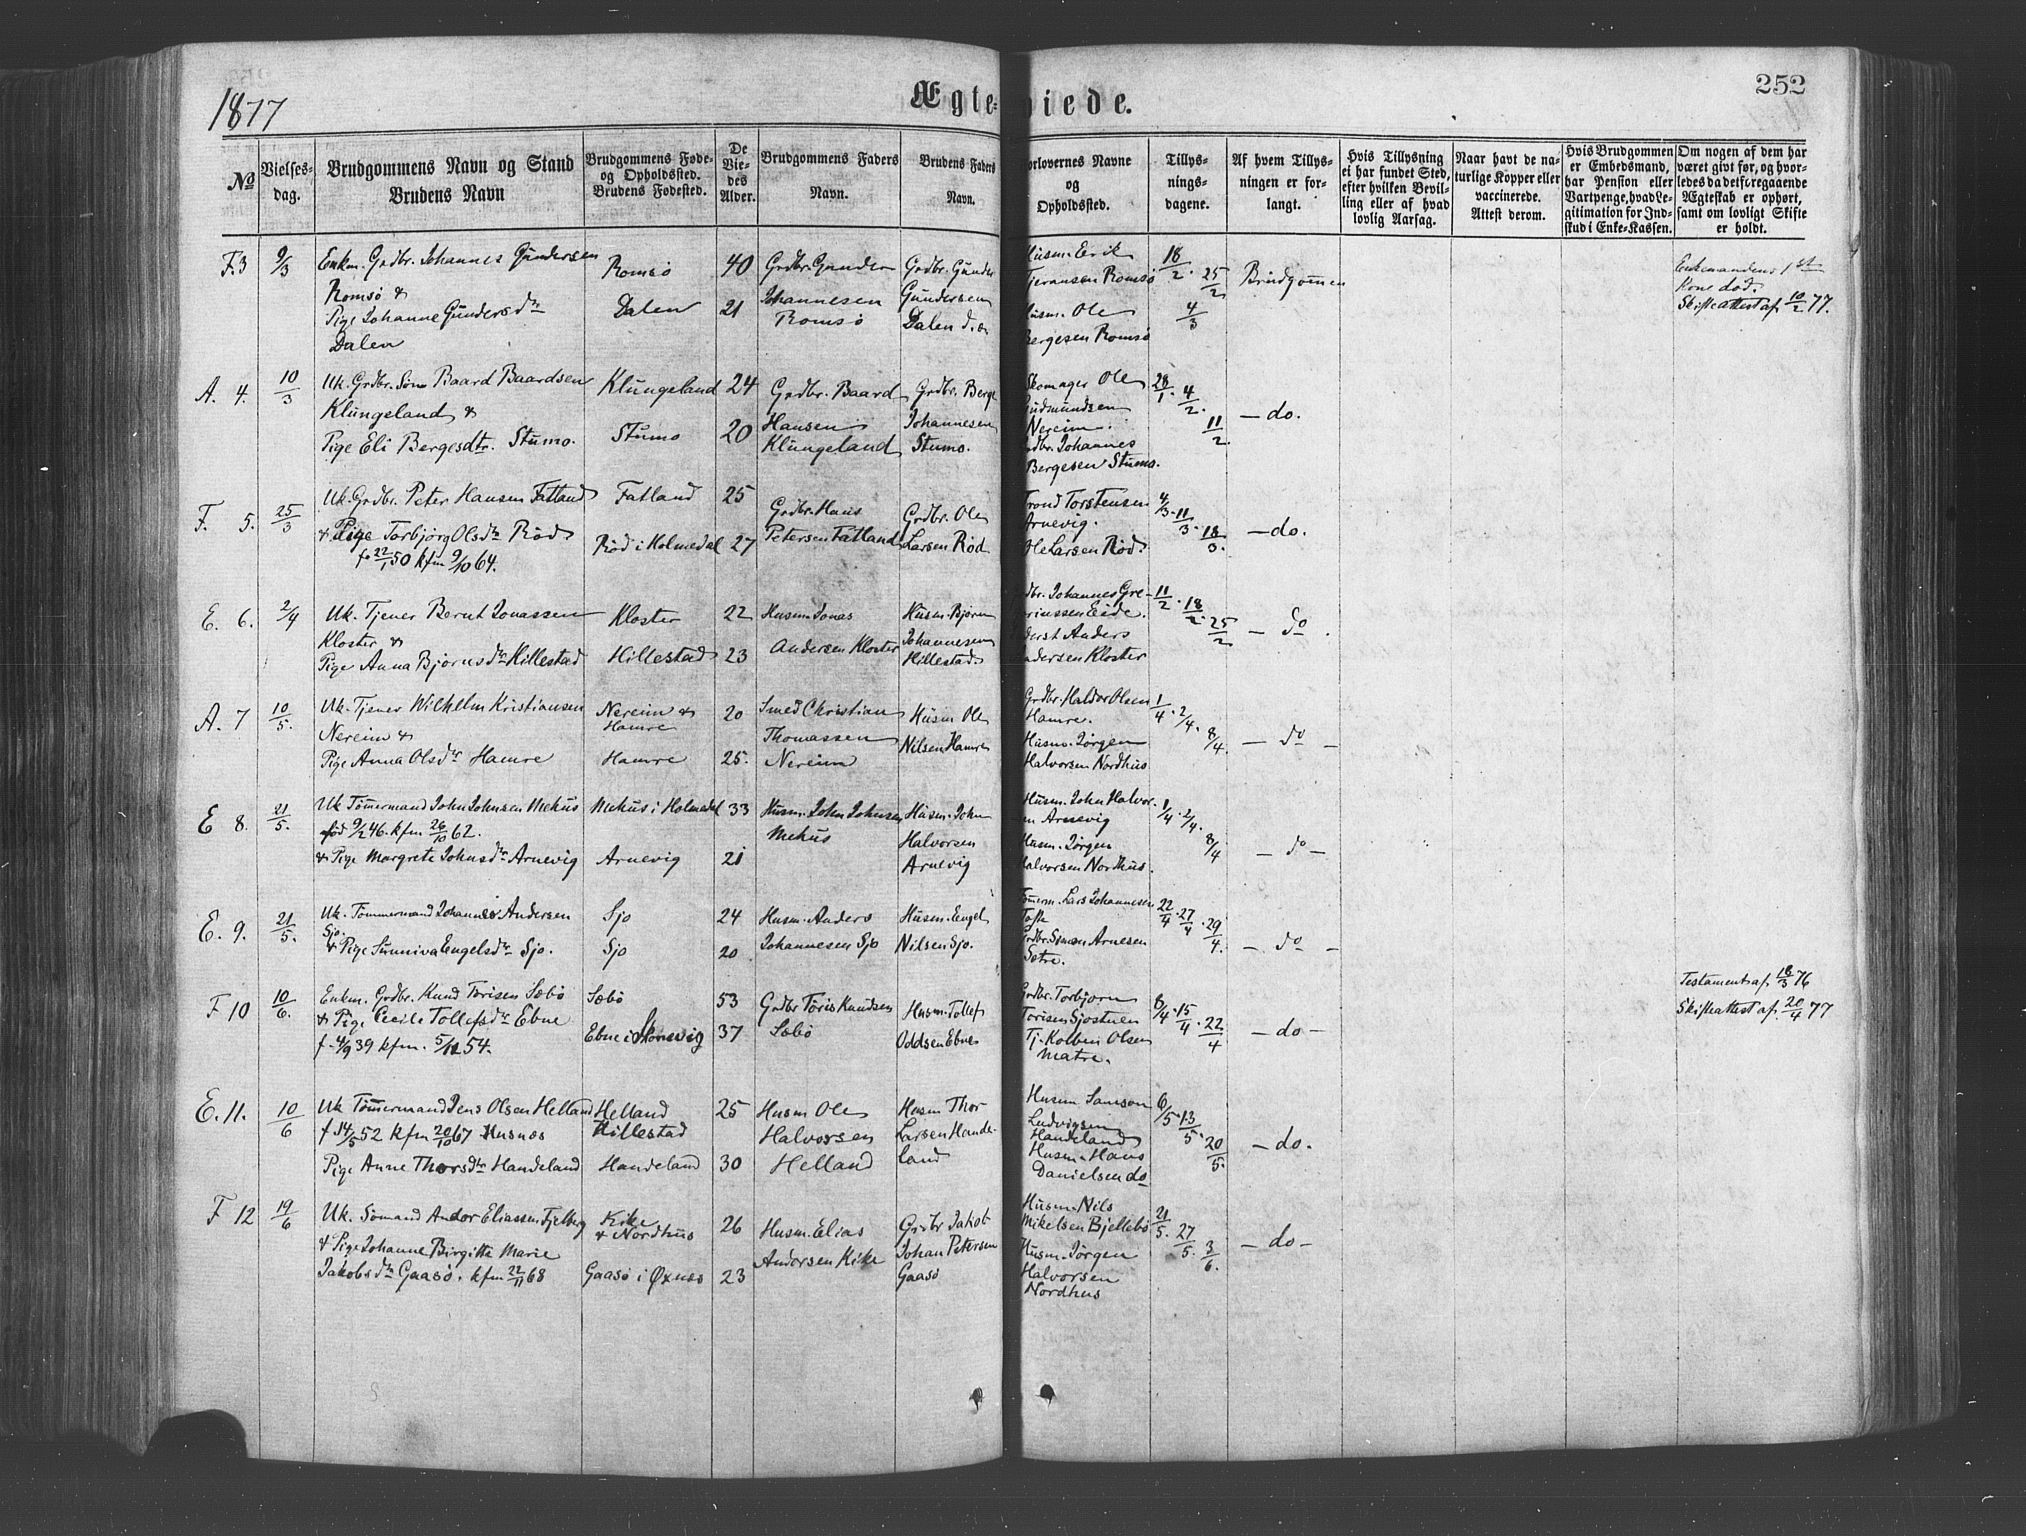 1877
Ægte- viede.
252
No
Vielses-
dag.
Brudgommens Navn og Stand
Brudens Navn
Brudgommens Føde-
og Opholdssted.
Brudens Fødested.
De
Vie-
des
Alder.
Brudgommens Faders
Navn.
Brudens Faders
Navn.
orlovernes Navne
og
Opholdssted.
Tillys-
nings-
dagene.
Af hvem Tillys-
ningen er for-
langt.
Hvis Tillysning
ei har fundet Sted,
efter hvilken Bevil-
ling eller af hvad
lovlig Aarsag.
Naar havt de na-
turlige Kopper eller
vaccinerede.
Attest derom.
Hvis Brudgommen
er Embedsmand,
har Pension eller
Vartpenge, hvad Le-
gitimation for Ind-
skud i Enke-Kassen.
Om nogen af dem har
været givt før, og hvor-
ledes da det foregaaende
Ægteskab er ophørt,
samt om lovligt Skifte
er holdt.
F. 3 9/3
Enkm. Grdbr. Johannes Gundersen
Romsø &
Pige Johanne Gundersdtr
Dalen
Romsø
Dalen
40
21
Grdbr. Gunder
Johannesen
Romsø
Grdbr. Gunder
Gundersen
Dalen d.æ
Husm. Erik
Tjeransen Romsø
Husm. Ole
Bergesen Romsø
18/2 . 25/2
4/3
Brudgommen
Enkemandens 1ste
Kone død.
Skifteattest af 10/2 77.
A. 4. 10/3
Uk. Grdbr. Søn Baard Baardsen
Klungeland &
Pige Eli Bergesdtr. Stumo.
Klungeland
Stumo
24
20
Grdbr. Baard
Hansen
Klungeland
Grdbr. Berge
Johannesen
Stumo.
Skomager Ole
Gudmundsen
Nereim.
Grdbr. Johannes
Bergesen Stumo.
28/1 . 4/2 .
11/2 .
— do.
F. 5. 25/3
Uk. Grdbr. Peter Hansen Fatland
& Pige Torbjørg Olsdtr Röd
f. 22/1 50 kfm 9/10 64.
Fatland
Röd i Holmedal
25
27
Grdbr. Hans
Petersen Fatland
Grdbr. Ole
Larsen Röd
Trond Torstensen
Arnevig.
Ole Larsen Röd
4/3 . 11/3 . 18/3 .
— do.
E. 6. 2/4
Uk. Tjener Bernt Jonassen
Kloster &
Pige Anna Bjørnsdtr Hillestad
Kloster
Hillestad
22
23
Husm. Jonas
Andersen Kloster
Husm. Bjørn
Johannesen
Hillestad
Grdbr. Johannes Gre-
Eide.
Anders
Andersen Kloster
11/2 . 18/2 . 25/2
— do .
A. 7 10/5.
Uk. Tjener Wilhelm Kristiansen
Nereim &
Pige Anna Olsdtr Hamre
Nereim &
Hamre
Hamre
20
25.
Smed Christian
Thomassen
Nereim
Husm Ole
Nilsen Hamre
Grdbr. Haldor Olsen
Hamre.
Husm. Jørgen
Halvorsen Nordhus
1/4 . 2/4 .
8/4
— do —
E 8. 21/5.
Uk Tömmermand John Johnsen Mehus
född 9/2 46. kfm 26/10 62.
& Pige Margrete Johnsdtr Arnevig
Mehus i Holmedal
Arnevig
33
21
Husm. John Johnsen
Mehus
Husm. John
Halvorsen
Arnevig
Husm. John Halvor-
sen Arnevig
Husm. Jørgen
Halvorsen Nordhus.
1/4 . 2/4 .
8/4
— do —
E. 9. 21/5.
Uk. Tømmermand Johannes Andersen
Sjo.
& Pige Sunniva Engelsdtr Sjo.
Sjo
Sjo
24
20
Husm. Anders
Johannesen Sjo
Husm. Engel
Nilsen Sjo.
Tömrm. Lars Johannesen
Tofte
Grdbr. Simon Arnesen
Sætre.
22/4 . 27/4 . 29/4 .
— do —
F 10 10/6.
Enkm. Grdbr. Knud Torisen Sæbö
& Pige Cecilie Tollefsdtr Ebne
f. 4/9 39 kfm. 5/11 54.
Sæbö
Ebne i Skonevig
53
37
Grdbr Toris Knudsen
Sæbö
Husm. Tollef
Oddsen Ebne
Grdbr. Torbjørn
Torisen
Tj. Kolben Olsen
Matre.
8/4 . 15/4 . 22/4
— do —
Testament af 18/3 76
Skifteattest af 20/4 77
E. 11. 10/6
Uk Tömmermand Jens Olsen Helland
f 14/5 52 kfm 20/10 67 Husnæs
Pige Anne Thorsdtr Handeland
Helland
Hillestad
Handeland
25
30
Husm Ole
Halvorsen
Helland
Husm Thor
Larsen Hande-
land
Husm Samson
Ludvigsen
Handeland
Husm. Hans
Danielsen do
6/5 . 13/5 . 20/5 .
— do.
F 12 19/6
Uk. Sømand Andor Eliassen Fjelberg
& Pige Johanne Birgitte Marie
Jakobsdtr Gaasø. kfm 22/11 68
Kike
& Nordhus
Gaasö i Øxnæs
26
23
Husm. Elias
Andersen Kike
Grdbr Jakob
Johan Petersen
Gaasö
Husm. Nils
Mikelsen Bjellebö
Husm. Jørgen
Halvorsen
Nordhus
21/5 . 27/5 . 3/6 .
— do —